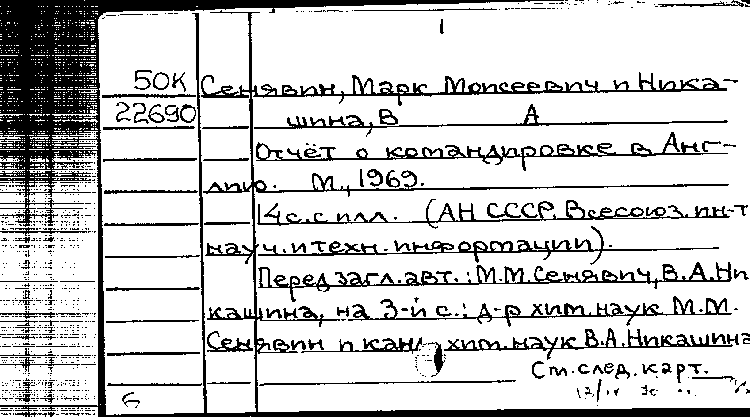 1
50К Сенявин, Марк Моисеевич и Ника-
22690 шина, В А
Отчёт о командировке в Анг-
лию. М., 1969.
14с. с илл. (АН СССР. Всесоюз. ин-т
науч. и техн. информации).
Перед загл. авт.: М.М. Сенявич, В.А. Ни
кашина, на 3-й с.: д-р хим. наук М.М.
Сенявин и канд. хим. наук В.А. Никашина
См. след. карт.
Б